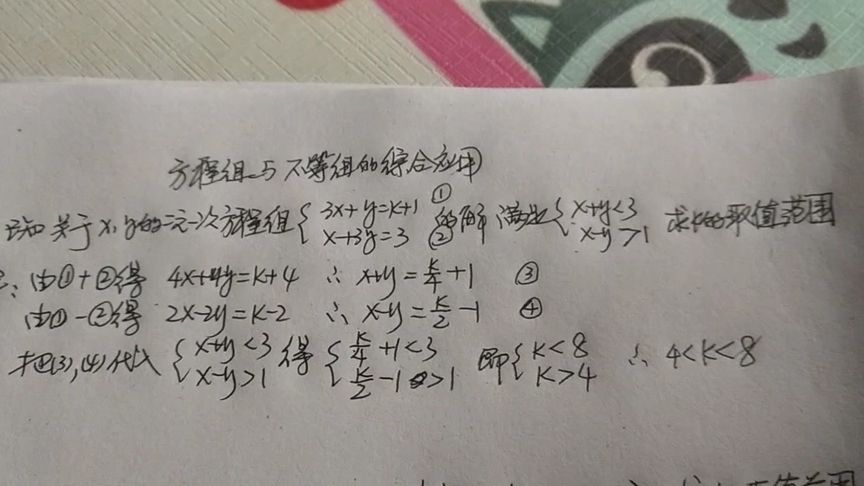 方程组与不等组的综合应用
已知关于x,y的二元一次方程组{3x+y=k+1 ① x+3y=3 ② 的解满足{x+y<3 x-y>1 求k的取值范围
: 由①+②得 4x+4y=k+4 ∴ x+y=k/4+1 ③
由①-②得 2x-2y=k-2 ∴ x-y=k/2-1 ④
把(3),(4)代入{x+y<3 x-y>1 得{k/4+1<3 k/2-1>1 即{k<8 k>4 ∴ 4<k<8